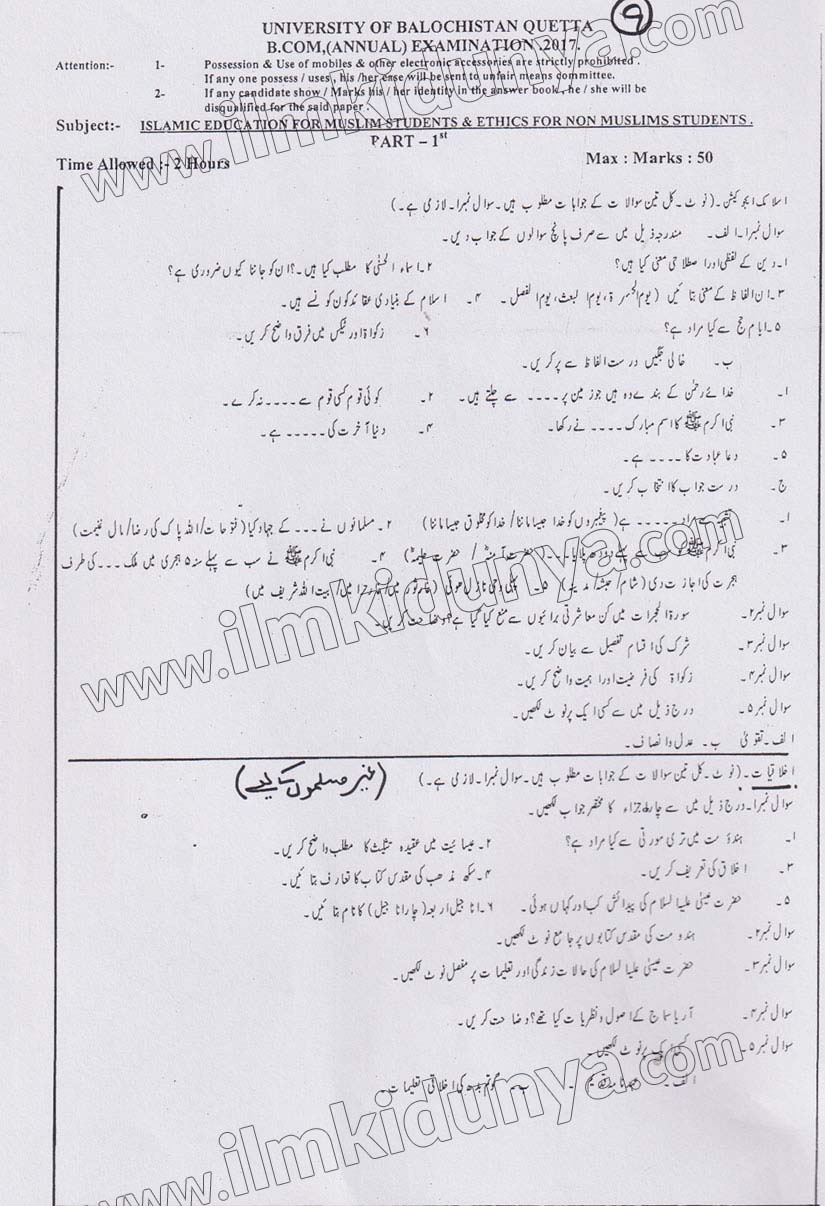 9
UNIVERSITY OF BALOCHISTAN QUETTA
B.COM,(ANNUAL) EXAMINATION .2017.
Attention:- 1- Possession & Use of mobiles & other electronic accessories are strictly prohibited .
If any one possess / uses , his /her case will be sent to unfair means committee.
2- If any candidate show / Marks his / her identity in the answer book , he / she will be
disqualified for the said paper .
Subject:- ISLAMIC EDUCATION FOR MUSLIM STUDENTS & ETHICS FOR NON MUSLIMS STUDENTS .
PART – 1st
Time Allowed :- 2 Hours Max : Marks : 50
اسلامک ایجوکیشن۔(نوٹ۔کل تین سوالات کے جوابات مطلوب ہیں۔سوال نمبرا۔لازمی ہے۔)
سوال نمبرا۔الف۔ مندرجہ ذیل میں سے صرف پانچ سوالوں کے جواب دیں۔
ا۔دین کے لفظی اور اصطلاحی معنی کیا ہیں؟ ۲۔اسماء الحسنٰی کا مطلب کیا ہیں۔؟ان کو جاننا کیوں ضروری ہے؟
۳۔ان الفاظ کے معنی بتائیں (یوم الحسرۃ،یوم البعث،یوم الفصل۔ ۴۔ اسلام کے بنیادی عقائد کون کونسے ہیں۔
۵۔ایام حج سے کیا مراد ہے؟ ۶۔ زکواۃ اور ٹیکس میں فرق واضح کریں۔
ب۔ خالی جگہیں درست الفاظ سے پر کریں۔
ا۔ خدائے رحمٰن کے بندے وہ ہیں جو زمین پر۔۔۔۔ سے چلتے ہیں۔ ۲۔ کوئی قوم کسی قوم سے۔۔۔۔نہ کرے۔
۳۔ نبی اکرم ﷺ کا اسم مبارک۔۔۔۔نے رکھا۔ ۴۔ دنیا آخرت کی۔۔۔۔۔ہے۔
۵۔ دعا عبادت کا۔۔۔۔ہے۔
ج۔ درست جواب کا انتخاب کریں۔
ا۔ مراد۔۔۔۔۔ہے(پیغمبروں کو خدا جیسا ماننا/خدا کو مخلوق جیسا ماننا) ۲۔مسلمانوں نے۔۔۔کے جہاد کیا(فتوحات/اللہ پاک کی رضا/مال غنیمت)
۳۔ نبی اکرم ﷺ کو سب سے پہلے دودھ پلایا۔۔۔(حضرت آمنہؓ / حضرت حلیمہؓ) ۴۔ نبی اکرم ﷺ نے سب سے پہلے سنہ ۵ ہجری میں ملک۔۔۔کی طرف
ہجرت کی اجازت دی(شام/حبشہ/مدینہ) ۵۔ پہلی وحی نازل ہوئی(غار ثور میں/غار حرا میں/بیت اللہ شریف میں)
سوال نمبر۲۔ سورۃ الحجرات میں کن معاشرتی برائیوں سے منع کیا گیا ہے؟وضاحت کریں۔
سوال نمبر۳۔ شرک کی اقسام تفصیل سے بیان کریں۔
سوال نمبر۴۔ زکواۃ کی فرضیت اور اہمیت واضح کریں۔
سوال نمبر۵۔ درج ذیل میں سے کسی ایک پر نوٹ لکھیں۔
الف۔تقویٰ ب۔ عدل وانصاف۔
اخلاقیات۔(نوٹ۔کل تین سوالات کے جوابات مطلوب ہیں۔سوال نمبرا۔لازمی ہے۔) (غیر مسلموں کے لیے)
سوال نمبرا۔درج ذیل میں سے چار اجزاء کا مختصر جواب لکھیں۔
ا۔ ہندؤمت میں تری مورتی سے کیا مراد ہے؟ ۲۔عیسائیت میں عقیدہ تثلیث کا مطلب واضح کریں۔
۳۔ اخلاق کی تعریف کریں۔ ۴۔سکھ مذھب کی مقدس کتاب کا تعارف بتائیں۔
۵۔ حضرت عیسٰی علیہ السلام کی پیدائش کب اور کہاں ہوئی۔ ۶۔اناجیل اربعہ(چار اناجیل)کا نام بتائیں۔
سوال نمبر۲۔ ہندومت کی مقدس کتابوں پر جامع نوٹ لکھیں۔
سوال نمبر۳۔ حضرت عیسٰی علیہ السلام کی حالات زندگی اور تعلیمات پر مفصل نوٹ لکھیں۔
سوال نمبر۴۔ آریا سماج کے اصول و نظریات کیا تھے؟وضاحت کریں۔
سوال نمبر۵۔ کسی ایک پر نوٹ لکھیں۔
الف۔ عہد نامہ قدیم ۔ ب۔ گوتم بدھ کی اخلاقی تعلیمات۔
www.ilmkidunya.com
www.ilmkidunya.com
www.ilmkidunya.com